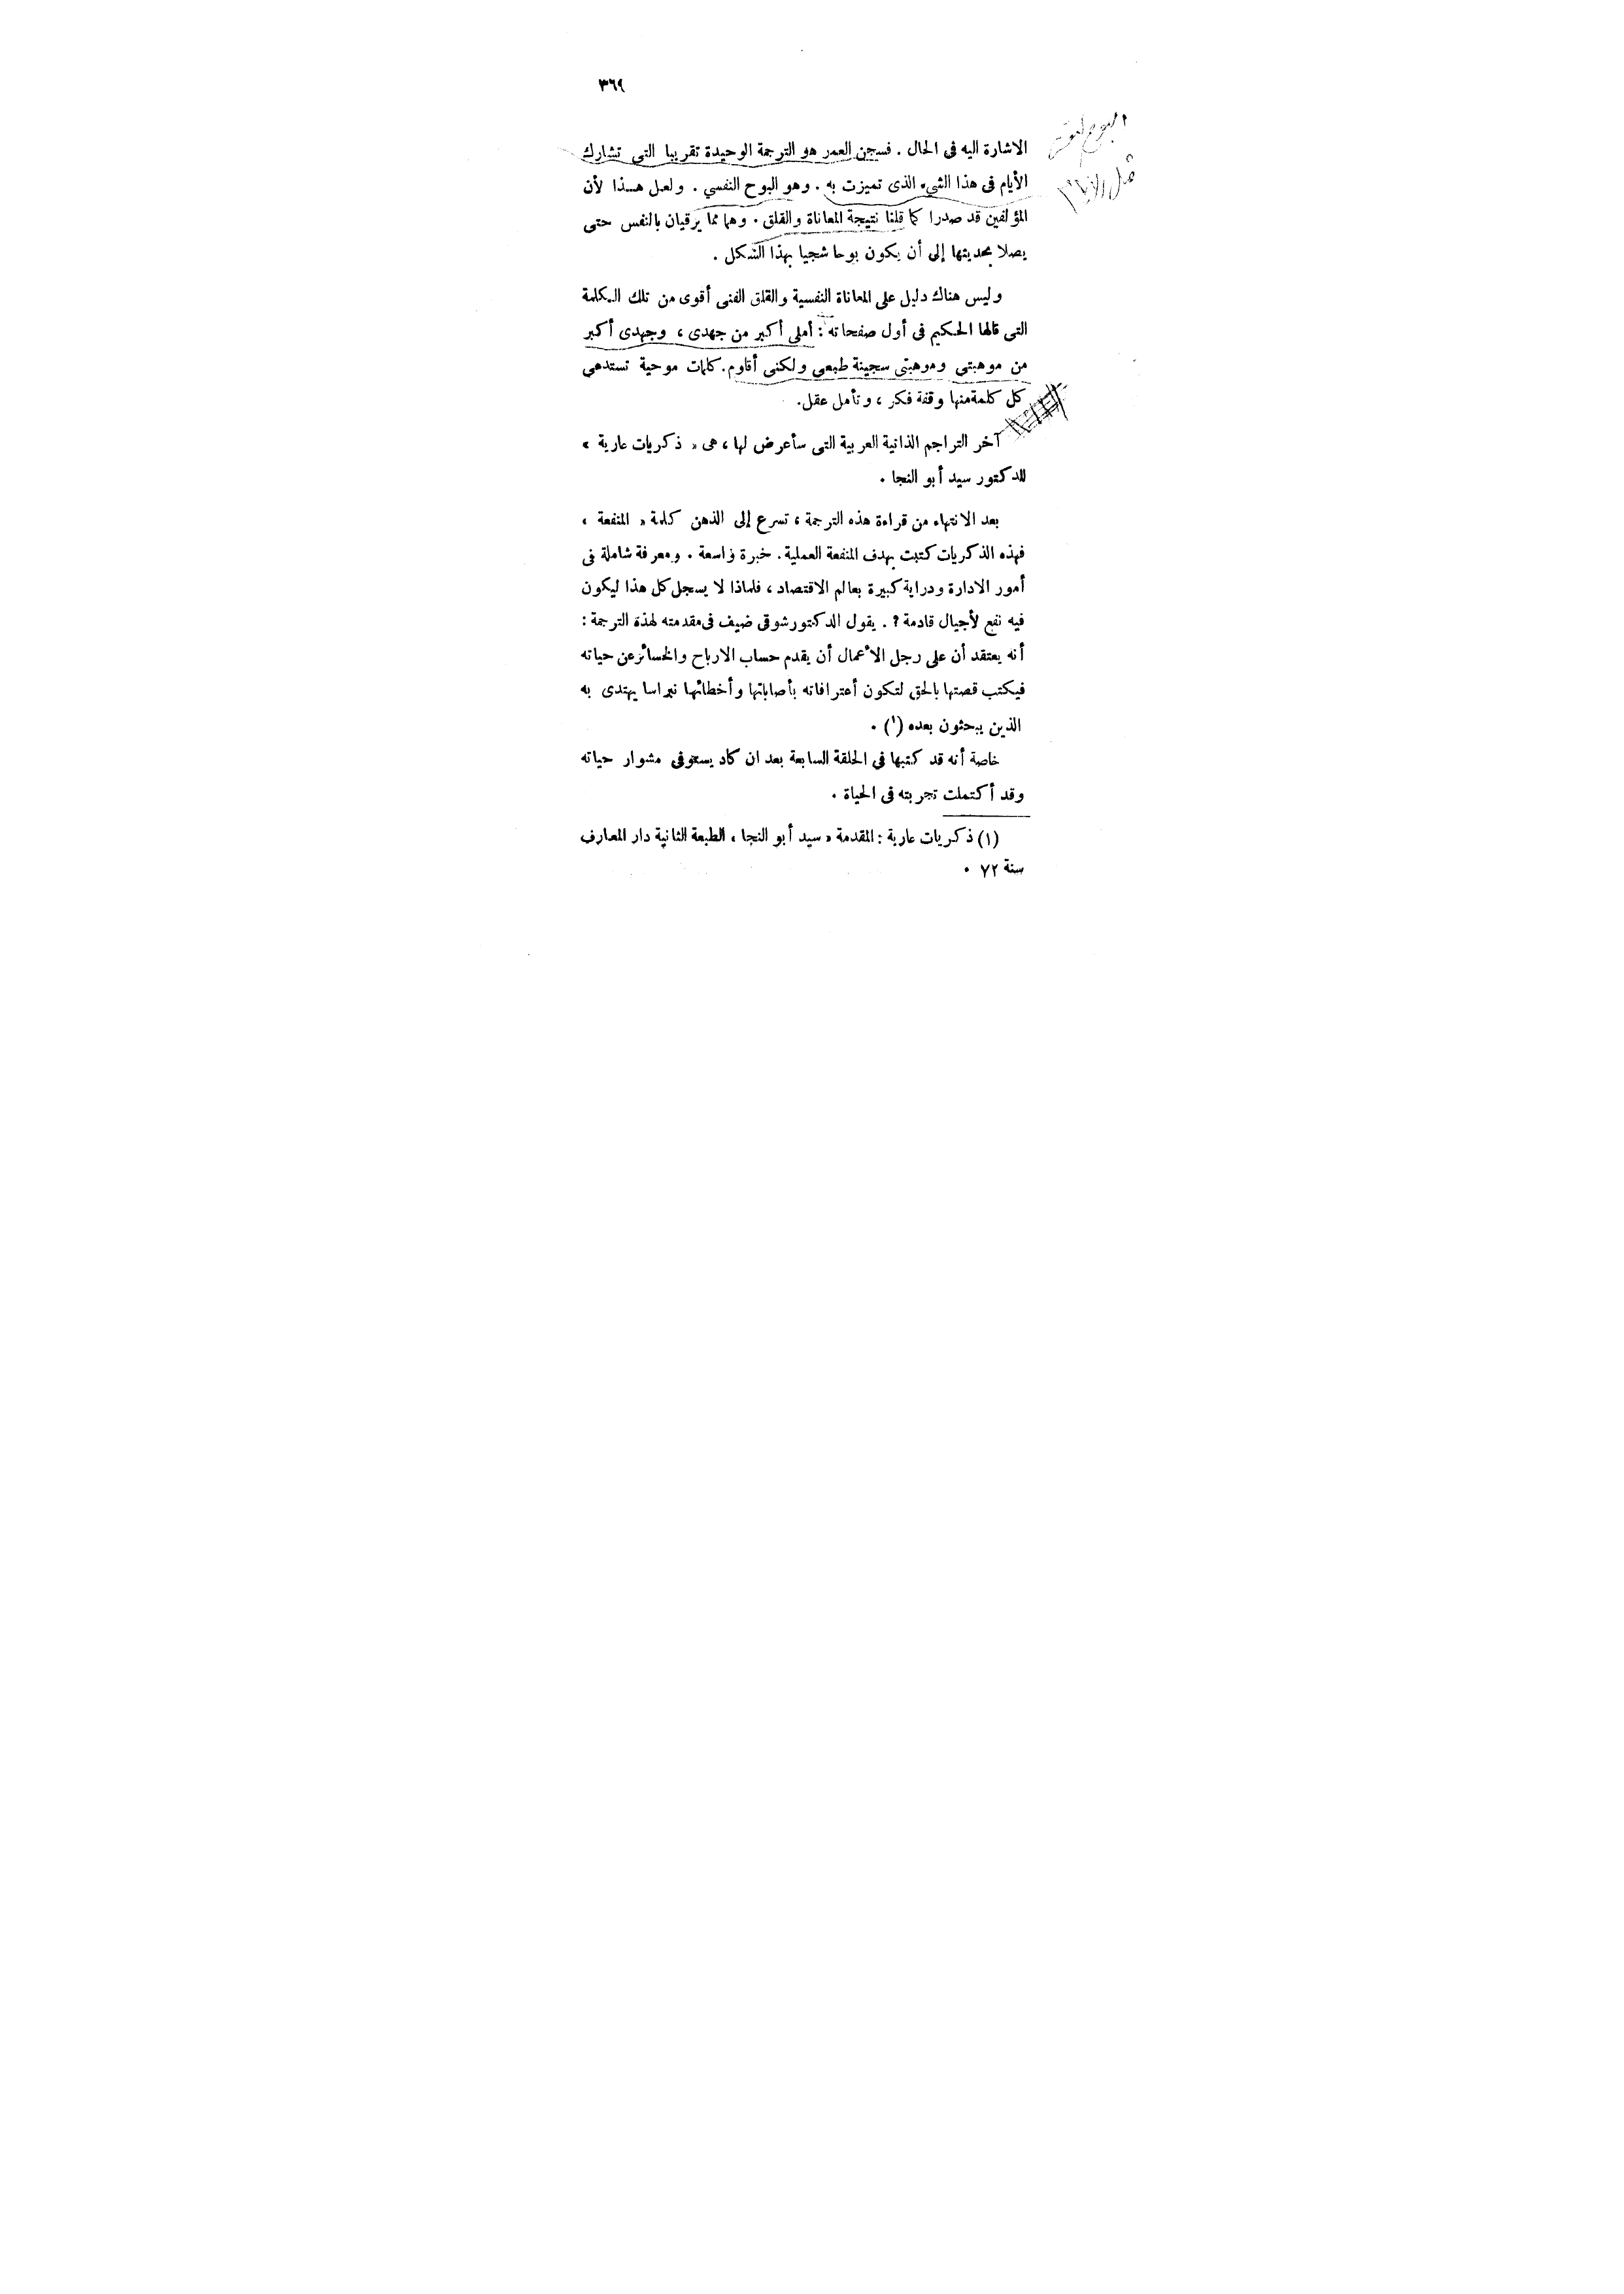 ٣٦٩
الاشارة اليه فى الحال . فسجن العمر هو الترجمة الوحيدة تقريبا التى تشارك
الأيام فى هذا الشىء الذى تميزت به . وهو البوح النفسي . ولعل هذا لأن
المؤلفين قد صدرا كما قلنا نتيجة المعاناة والقلق . وهما مما يرقيان بالنفس حتى
يصلا بحديثها إلى أن يكون بوحا شجيا بهذا الشكل .
وليس هناك دليل على المعاناة النفسية والقلق الفنى أقوى من تلك الكلمة
التى قالها الحكيم فى أول صفحاته : أملى أكبر من جهدى ، وجهدى أكبر
من موهبتي وموهبتى سجينة طبعى ولكنى أقاوم . كلمات موحية تستدعي
كل كلمة منها وقفة فكر ، وتأمل عقل .
آخر التراجم الذاتية العربية التى سأعرض لها ، هى « ذكريات عارية »
للدكتور سيد أبو النجا .
بعد الانتهاء من قراءة هذه الترجمة ، تسرع إلى الذهن كلمة « المنفعة »
فهذه الذكريات كتبت بهدف المنفعة العملية . خبرة واسعة . ومعرفة شاملة فى
أمور الادارة ودراية كبيرة بعالم الاقتصاد ، فلماذا لا يسجل كل هذا ليكون
فيه نفع لأجيال قادمة ؟ . يقول الدكتور شوقى ضيف فى مقدمته لهذه الترجمة :
أنه يعتقد أن على رجل الأعمال أن يقدم حساب الارباح والخسائر عن حياته
فيكتب قصتها بالحق لتكون أعترافاته بأصاباتها وأخطائها نبراسا يهتدى به
الذين يبحثون بعده (١) .
خاصة أنه قد كتبها فى الحلقة السابعة بعد ان كاد يستوفى مشوار حياته
وقد أكتملت تجربته فى الحياة .
(١) ذكريات عارية : المقدمة « سيد أبو النجا » الطبعة الثانية دار المعارف
سنة ٧٢ .